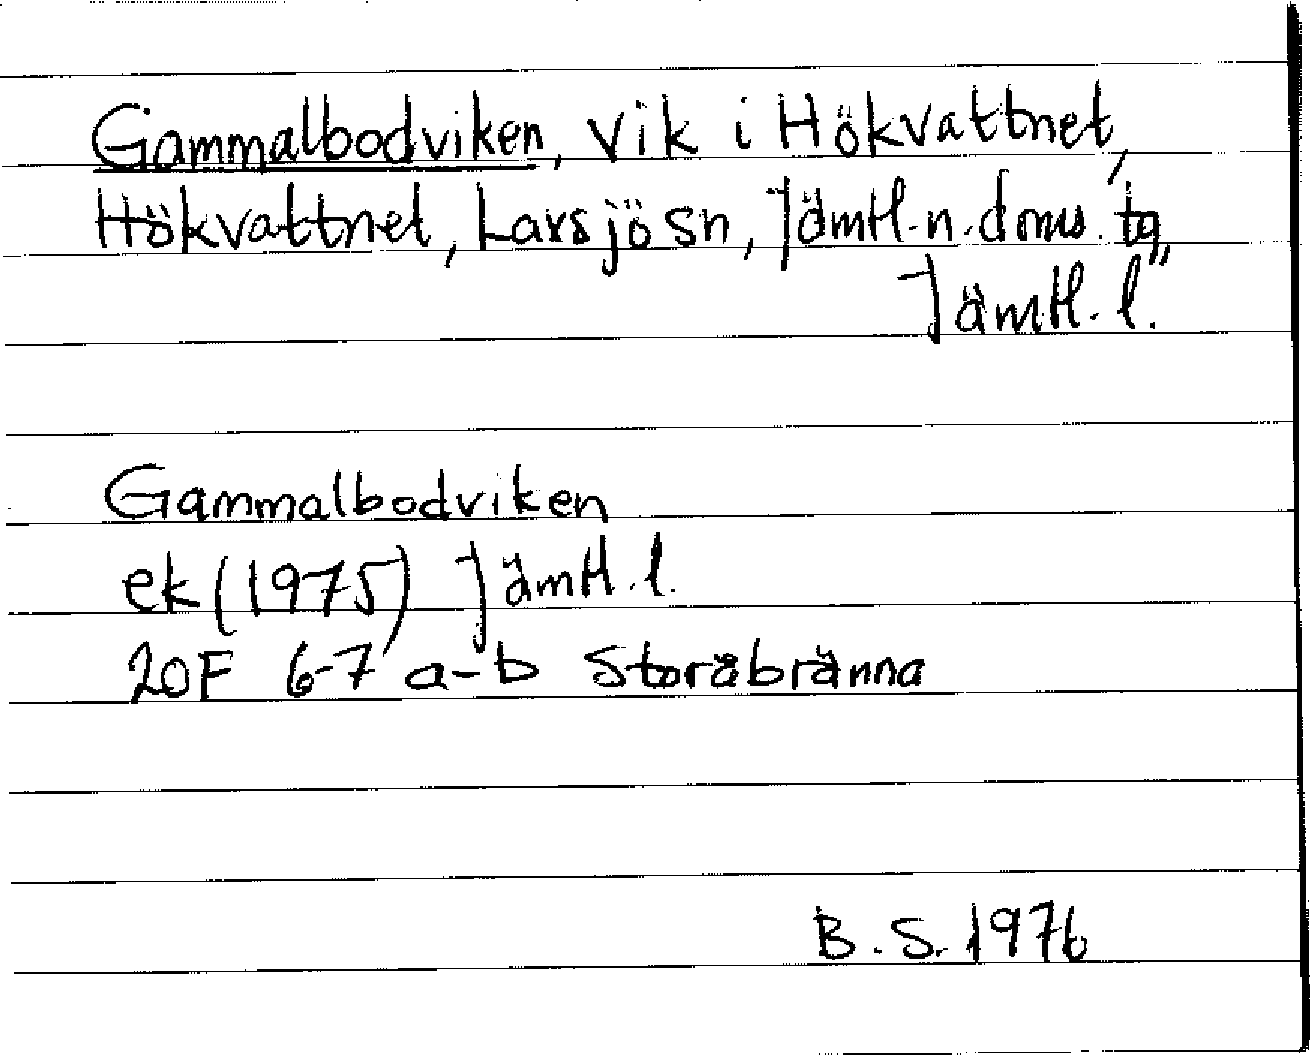 Gammalbodviken, vik i Hökvattnet,
Hökvattnet, Larsjö sn, Jämtl. n. doms. tg,
Jämtl. l.
Gammalbodviken
ek (1975) Jämtl. l.
20F 6-7 a-b Storåbränna
B. S. 1976